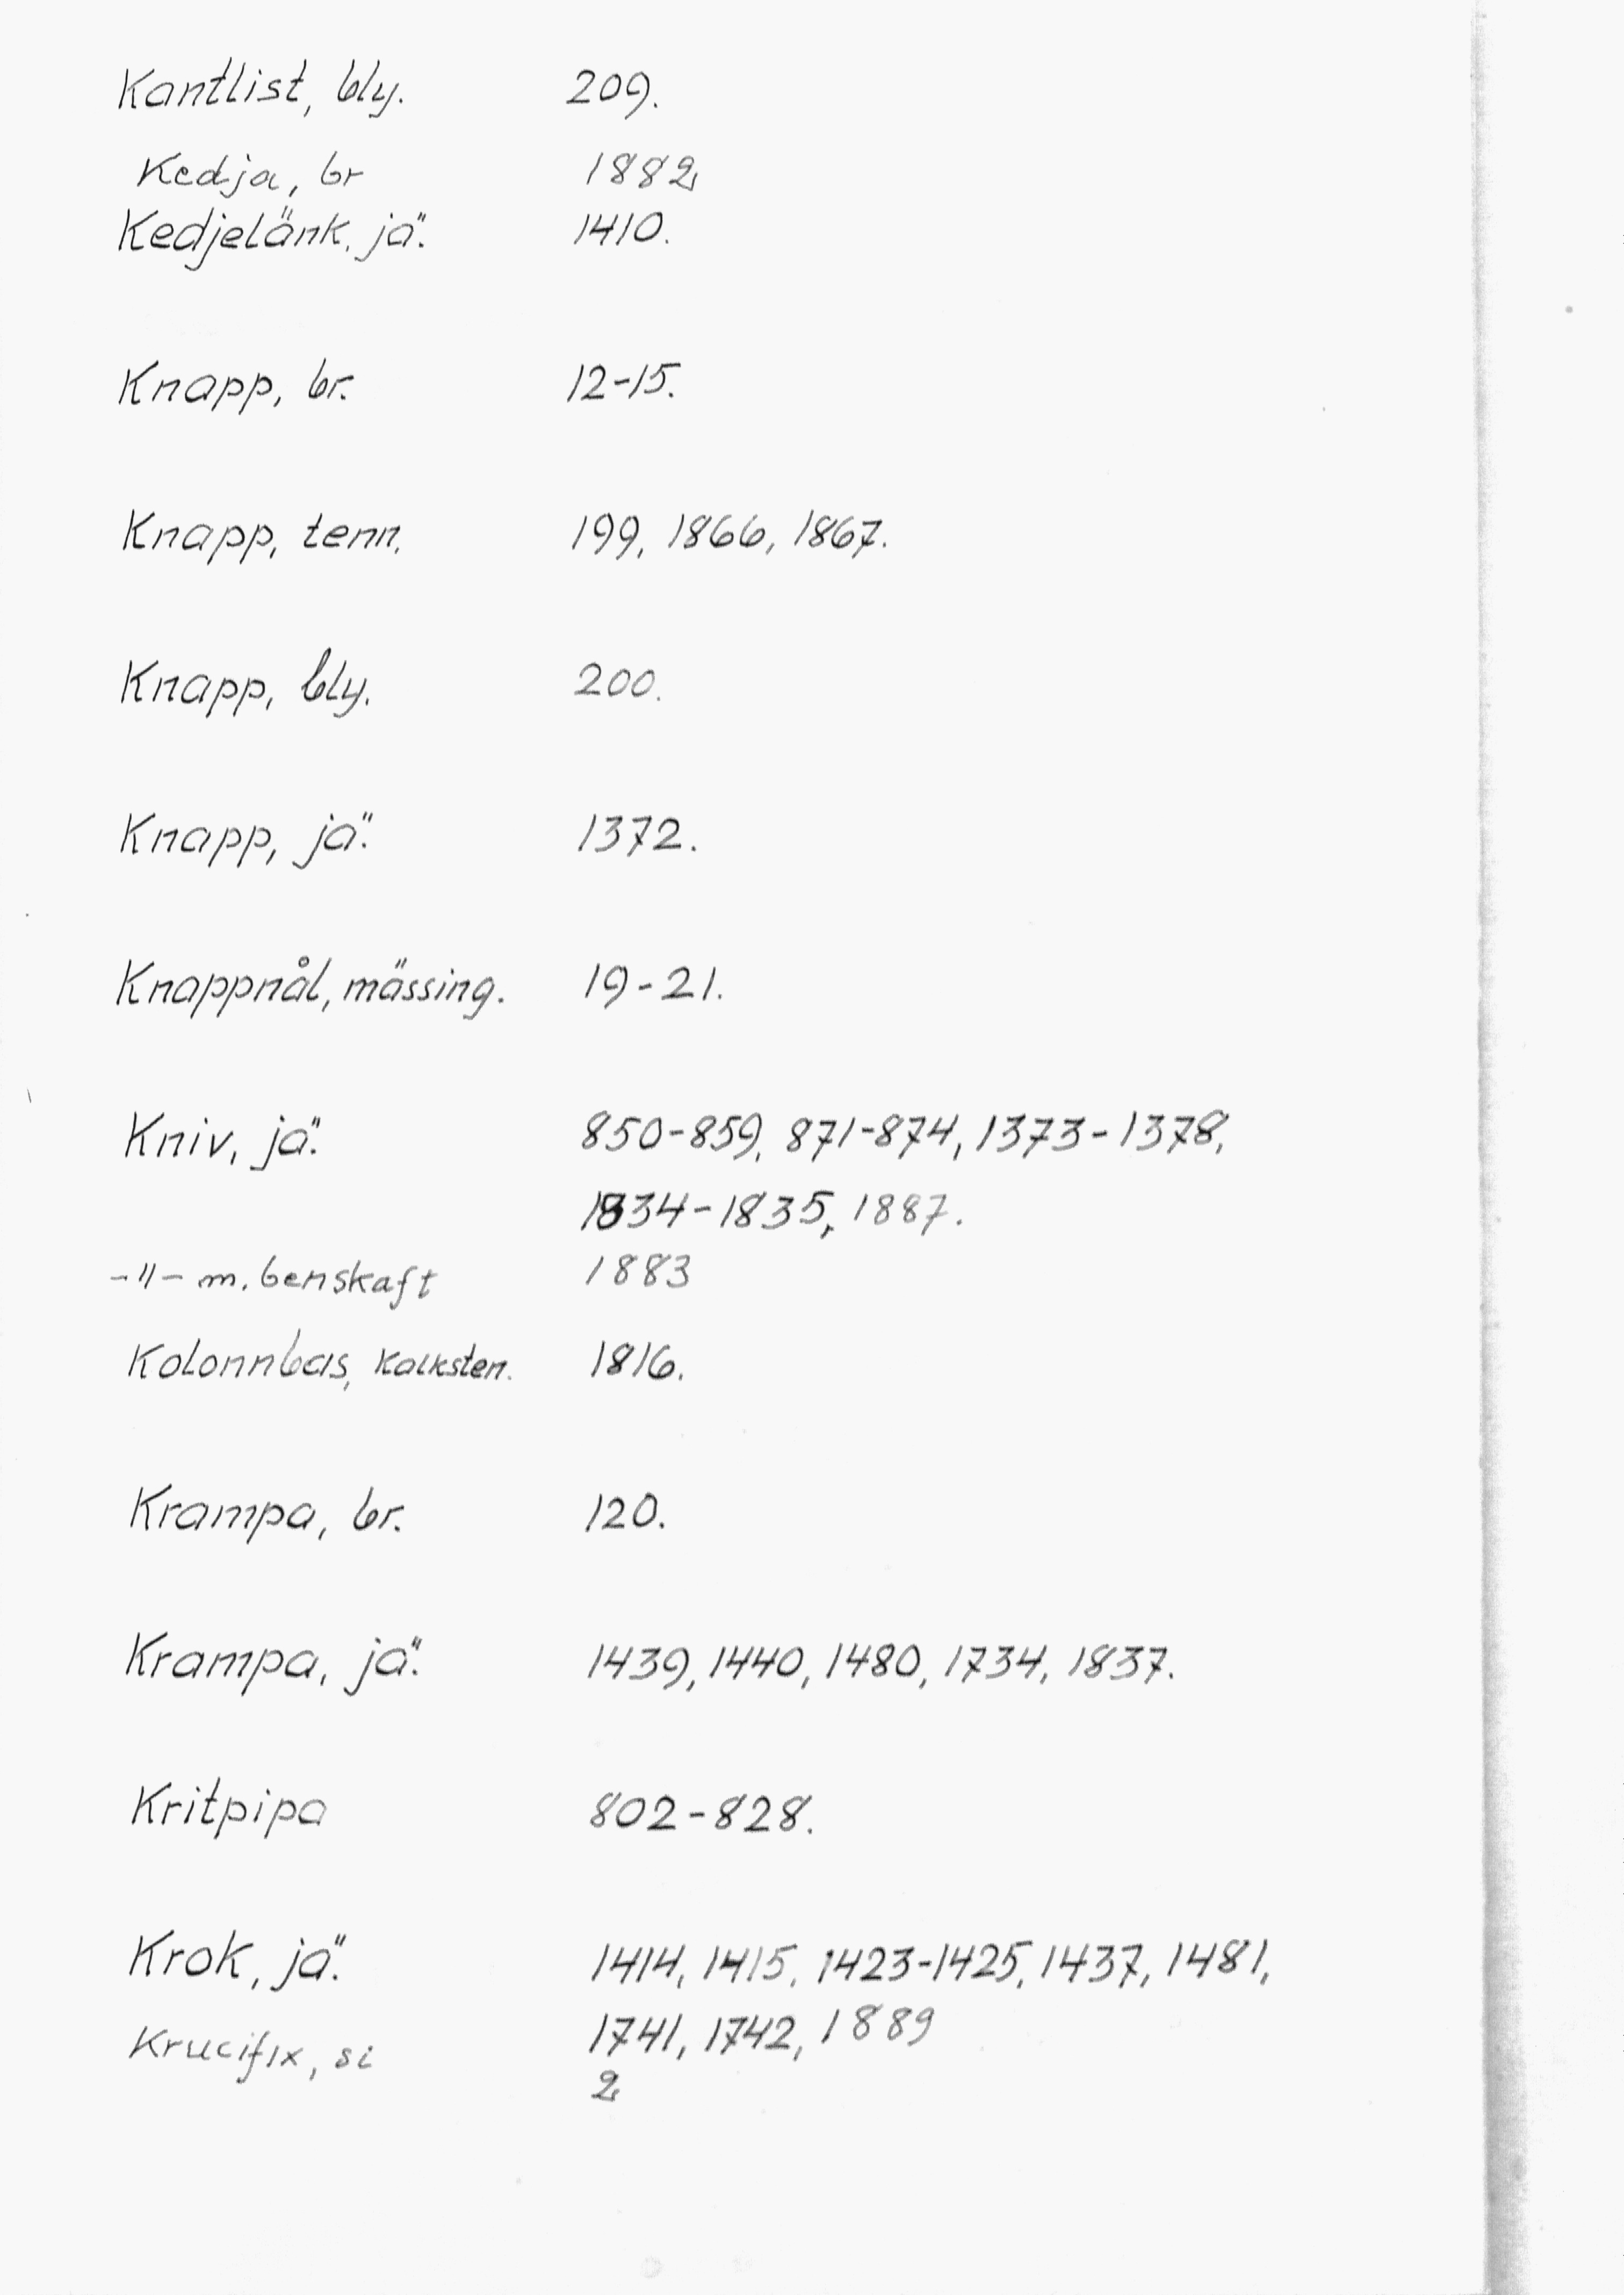 Kantlist, bly. 209.
Kedja, br 1882
Kedjelänk, jä. 1410.
Knapp, br. 12-15.
Knapp, tenn. 199, 1866, 1867.
Knapp, bly. 200.
Knapp, jä. 1372.
Knappnål, mässing. 19-21.
Kniv, jä. 850-859, 871-874, 1373-1378,
1834-1835, 1887.
-"- m. benskaft 1883
Kolonnbas, kalksten. 1816.
Krampa, br. 120.
Krampa, jä. 1439, 1440, 1480, 1734, 1837.
Kritpipa 802-828.
Krok, jä. 1414, 1415, 1423-1425, 1437, 1481,
1741, 1742, 1889
Krucifix, si 2